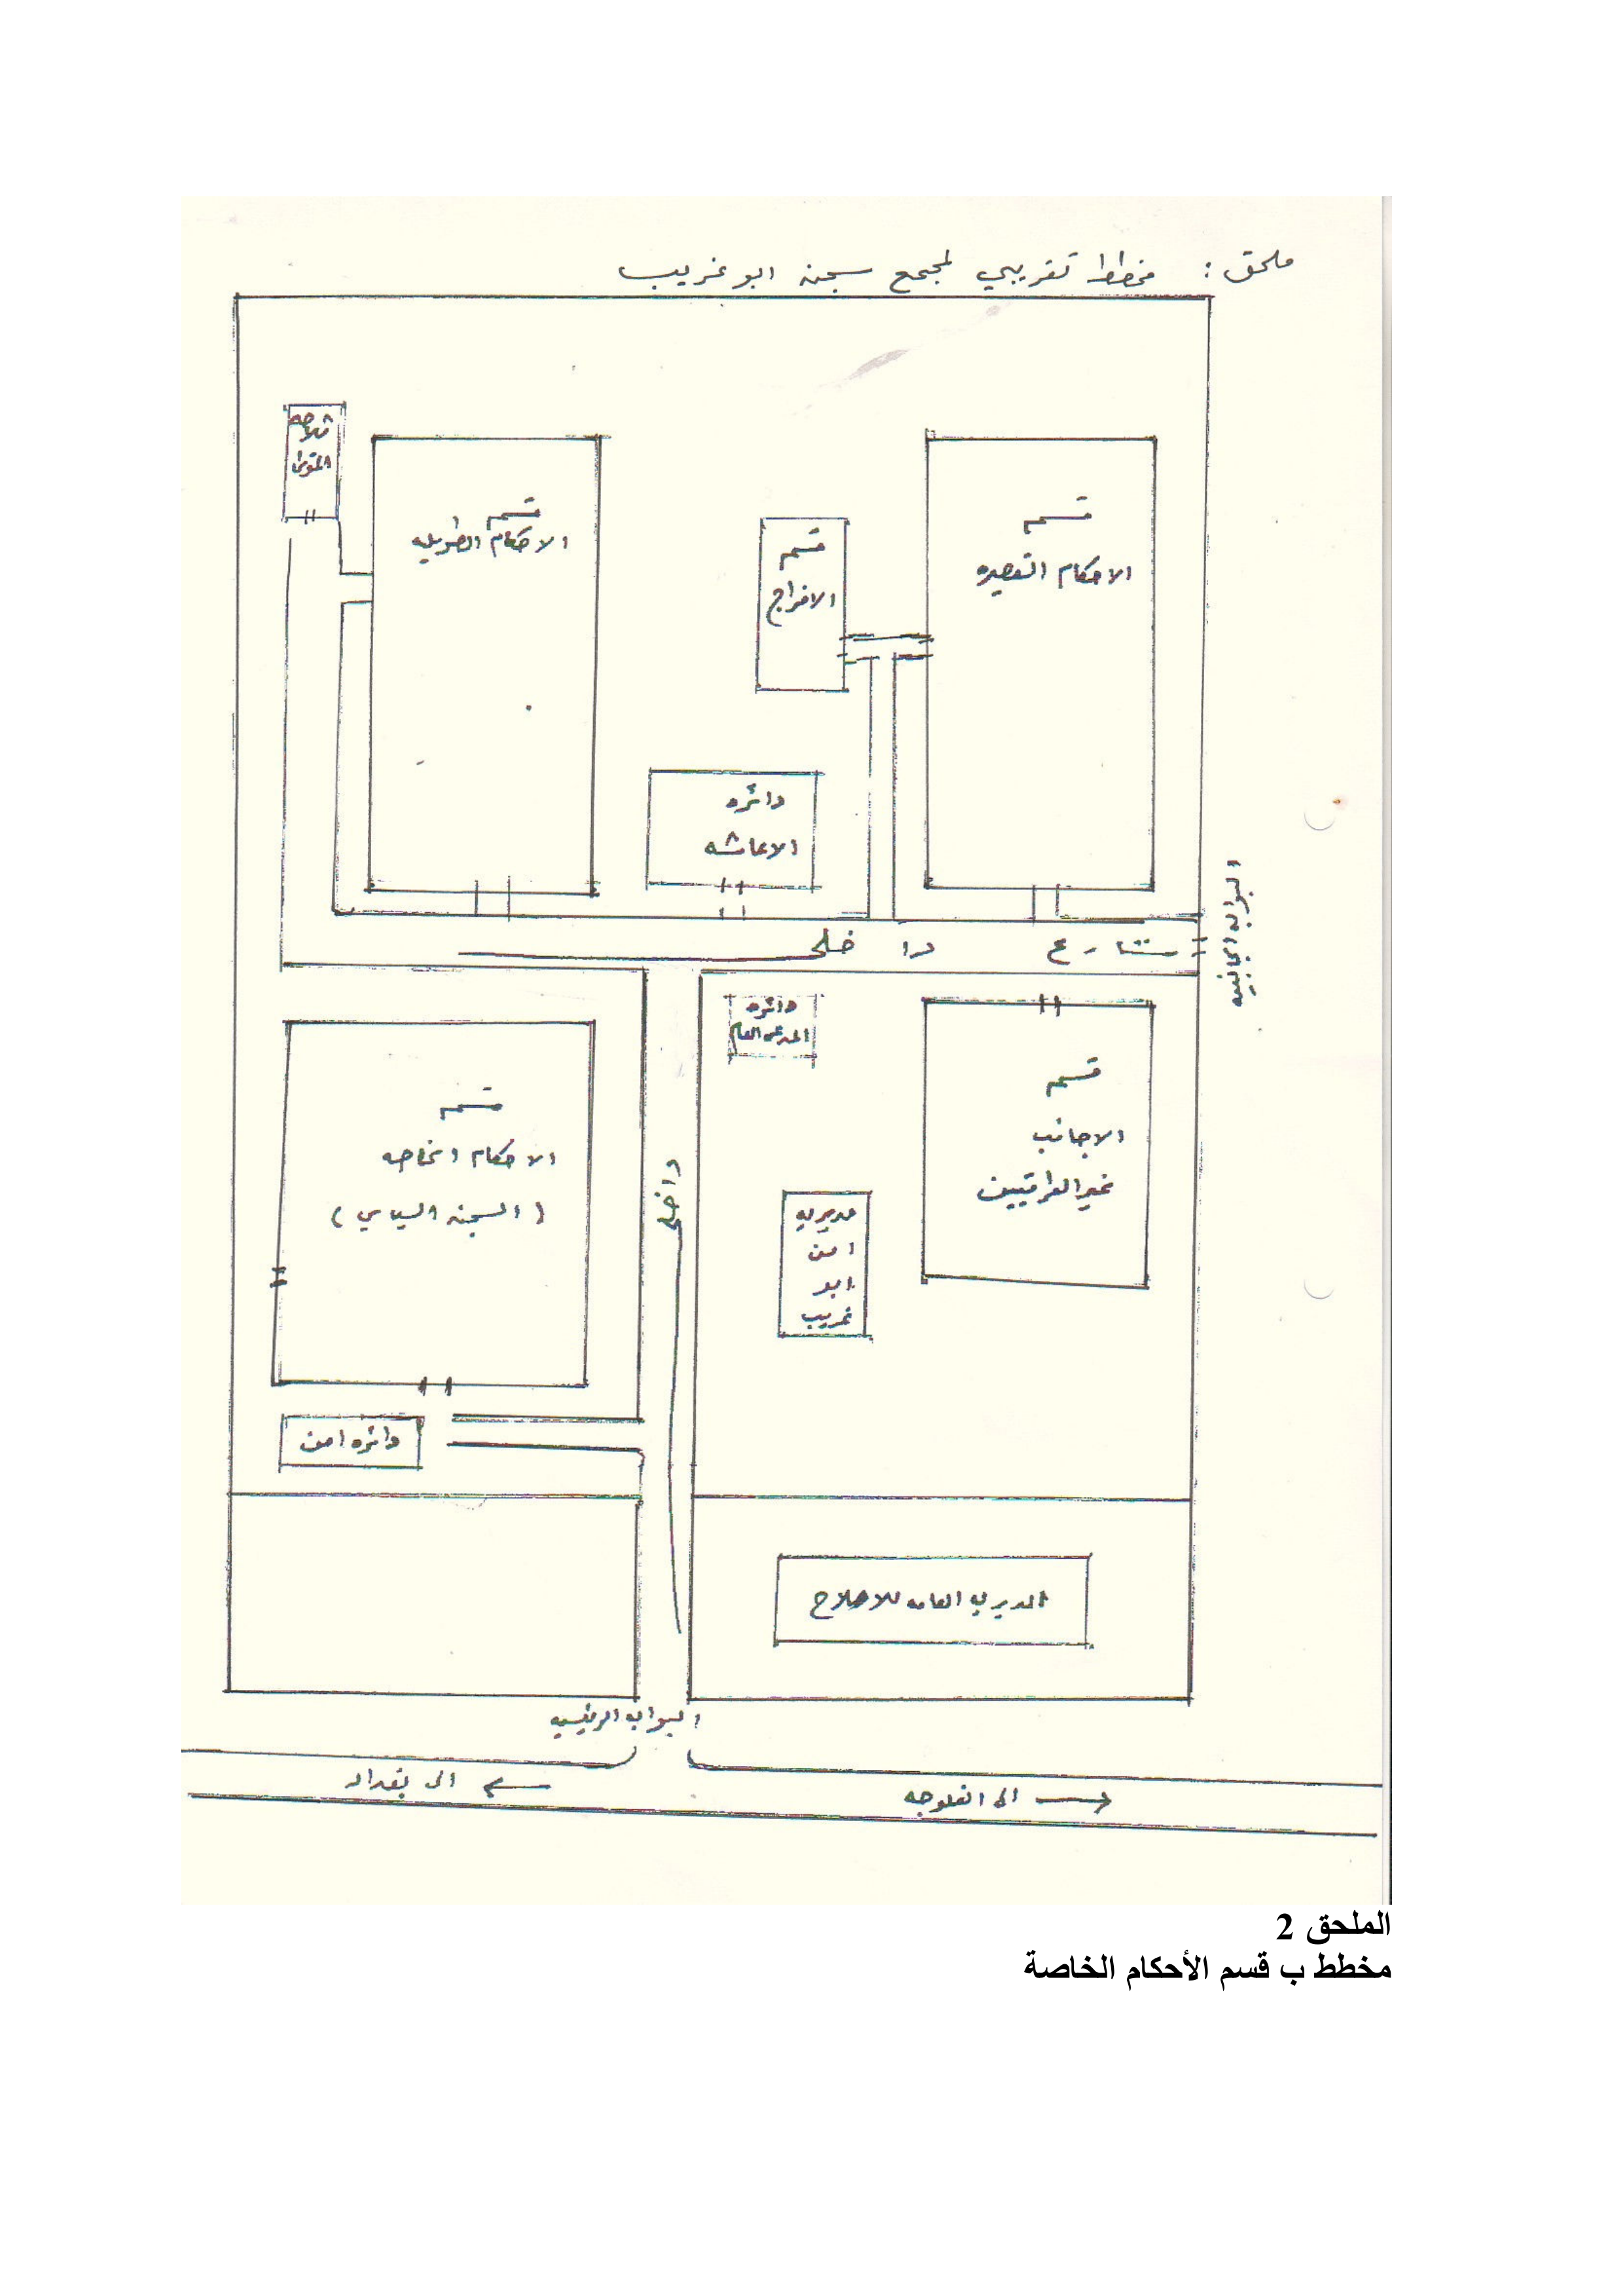 ملحق : مخطط تقريبي لمجمع سجن ابو غريب
ثلاجه
الموتى
قسم
الاحكام الطويله
قسم
الافراج
قسم
الاحكام القصيره
دائره
الاعاشه
البوابه الجانبيه
شارع داخلي
دائره
المدعي العام
قسم
الاجانب
غير العراقيين
قسم
الاحكام الخاصه
( السجن السياسي )
داخلي
مديريه
امن
ابو
غريب
دائره امن
المديريه العامه للاصلاح
البوابه الرئيسيه
الى بغداد
الى الفلوجه
الملحق 2
مخطط ب قسم الأحكام الخاصة